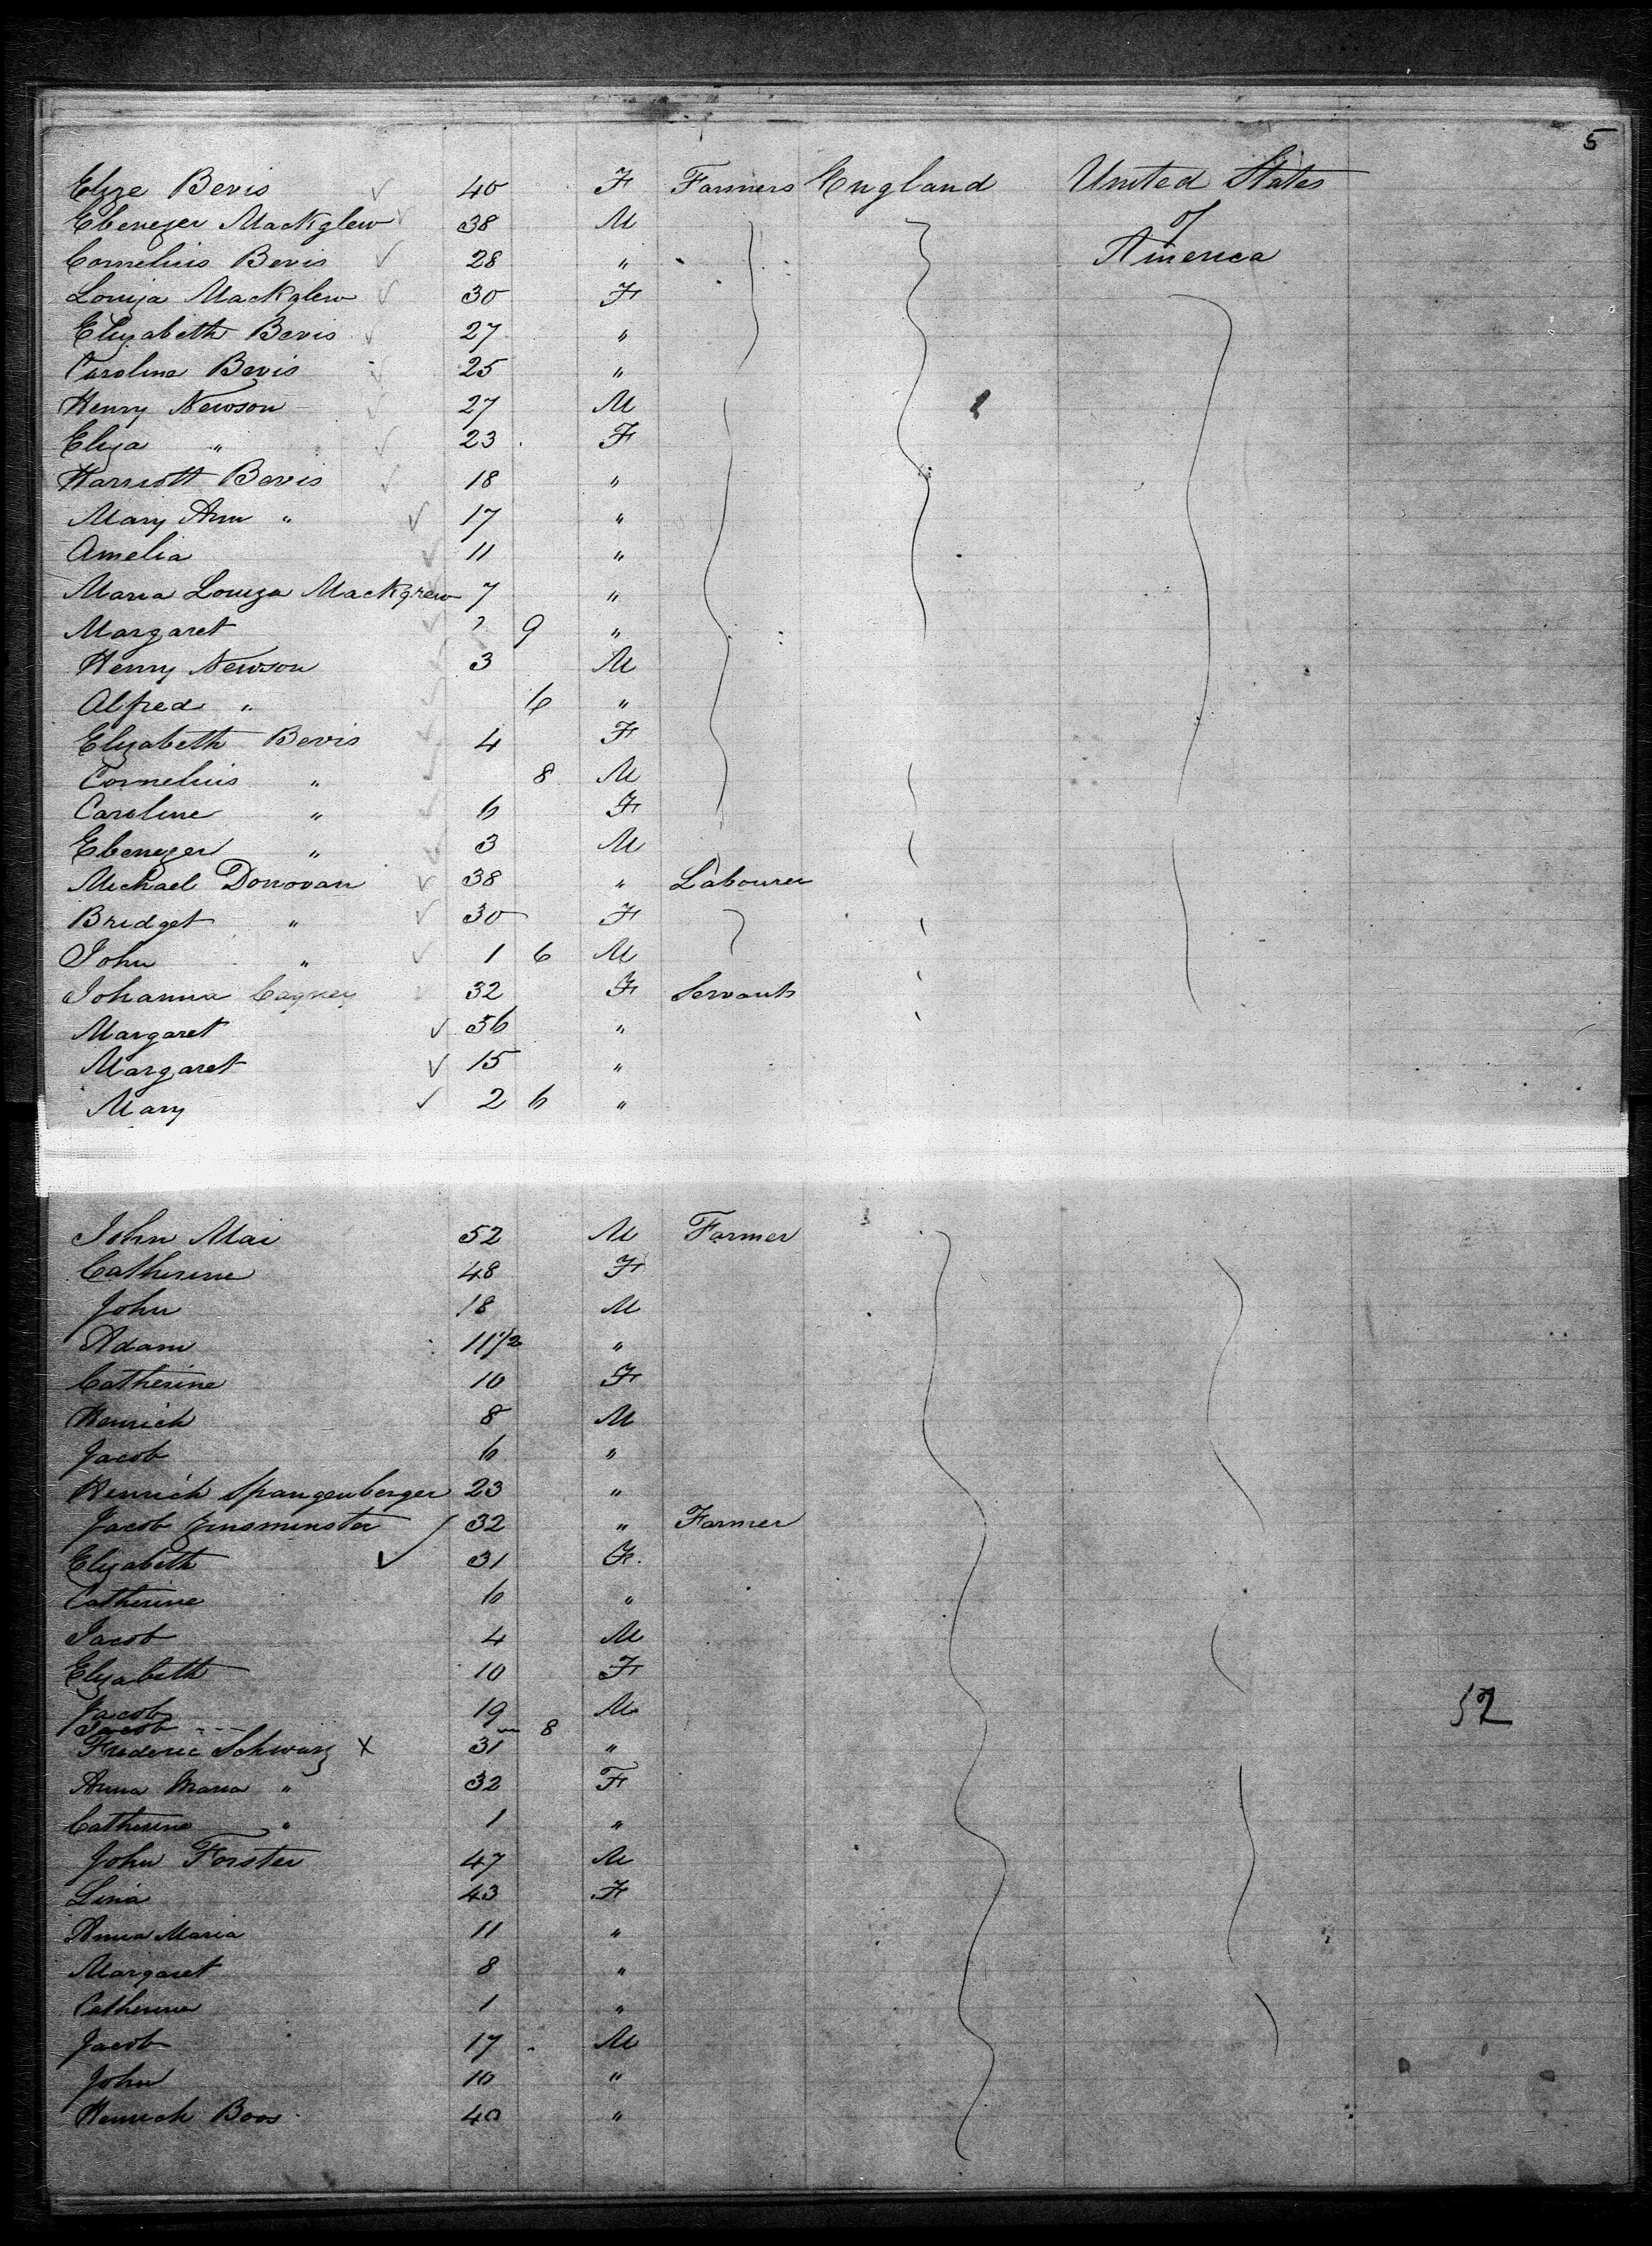 5
Elize Bevis 40 F Farmers England United States
Ebenezer Mackglew 38 M of
Cornelius Bevis 28 " America
Louiza Mackglew 30 F
Elizabeth Bevis 27 "
Caroline Bevis 25 "
Henry Newson 27 M
Eliza " 23 F
Harriott Bevis 18 "
Mary Ann " 17 "
Amelia 11 "
Maria Louiza Mackgrew 7 "
Margaret 9 "
Henry Newson 3 M
Alfred " 6 "
Elizabeth Bevis 4 F
Cornelius " 8 M
Caroline " 6 F
Ebenezer " 3 M
Michael Donovan 38 " Labourer
Bridget " 30 F
John " 1 6 M
Johanna Cagney 32 F Servants
Margaret 36 "
Margaret 15 "
Mary 2 6 "
John Mai 52 M Farmer
Catherine 48 F
John 18 M
Adam 11 1/2 "
Catherine 10 F
Henrich 8 M
Jacob 6 "
Henrich Spangenberger 23 "
Jacob Zinsminster 32 " Farmer
Elizabeth 31 F
Catherine 6 "
Jacob 4 M
Elizabeth 10 F
Jacob 19 M 52
Jacob 8
Frederic Schwarz X 31 "
Anna Maria " 32 F
Catherine " 1 "
John Forster 47 M
Lina 43 F
Anna Maria 11 "
Margaret 8 "
Catherine 1 "
Jacob 17 M
John 10 "
Henrich Boos 40 "